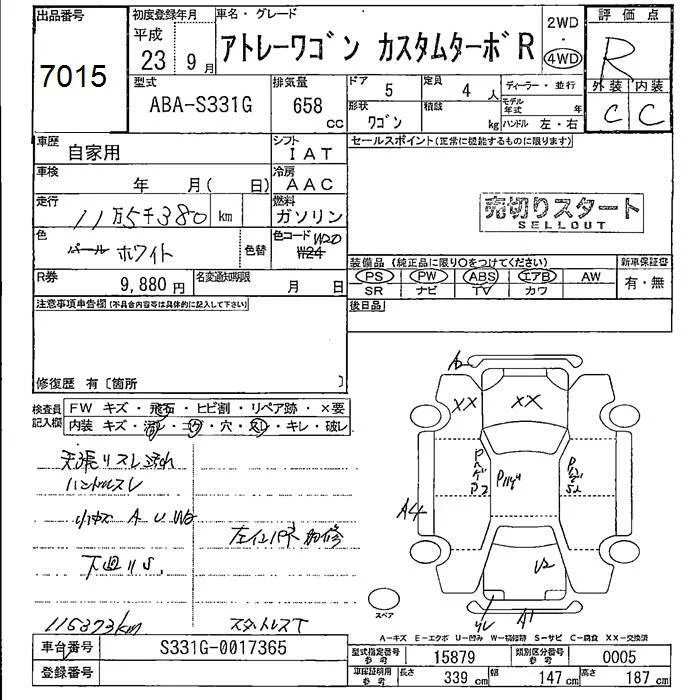 出品番号
7015
初度登録年月
平成
23 9月
車名・グレード
アトレーワゴン カスタムターボR
2WD
・
4WD
評価点
R
外装 内装
C C
型式
ABA-S331G
排気量
658
cc
ドア
5
定員
4 人
ディーラー・並行
形状
ワゴン
積載
kg
モデル年式 年
ハンドル 左・右
車歴
自家用
シフト
IAT
セールスポイント(正常に機能するものに限ります)
車検
年 月( 日)
冷房
AAC
走行
11万5千380 km
燃料
ガソリン
売切りスタート
SELLOUT
色
パール ホワイト
色替
色コード W20
W24
装備品 (純正品に限り〇をつけてください)
新車保証書
PS PW ABS エアB AW
有・無
SR ナビ TV カワ
R券
9,880円
名変通知期限
月 日
後日品
注意事項申告欄(不具合内容等は具体的に記入して下さい)
修復歴 有〔箇所 〕
検査員
記入欄
FW キズ・飛石・ヒビ割・リペア跡・×要
内装 キズ・汚レ・コゲ・穴・スレ・キレ・破レ
天張リスレ汚れ
ハンドルスレ
小キズ A U W6
左インパネ加修
下廻りS.
115373km
スタットレスT
A2
XX
XX
P
ハゲ
P2
Pハゲ
P
ハゲ
S2
A4
U2
ワレ
A1
スペア
A-キズ E-エクボ U-凹み W-補修跡 S-サビ C-腐食 XX-交換済
車台番号
S331G-0017365
登録番号
型式指定番号
参考
15879
類別区分番号
参考
0005
車庫証明用
参考
長さ 339 cm
幅 147 cm
高さ 187 cm